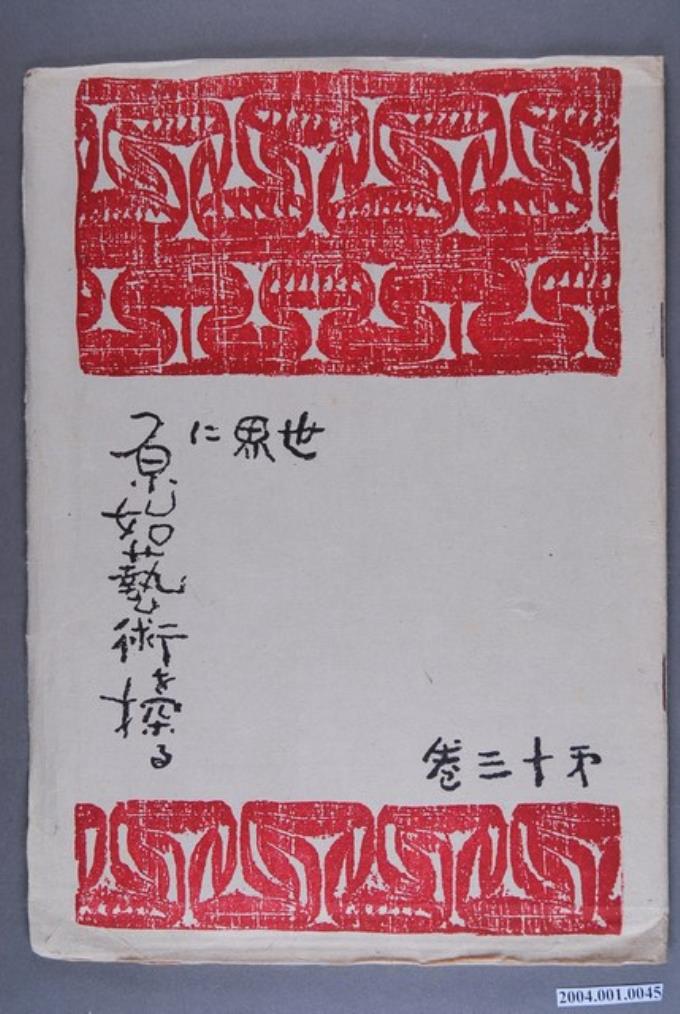 世界に
原始藝術を探る
第十三卷
2004.001.0045